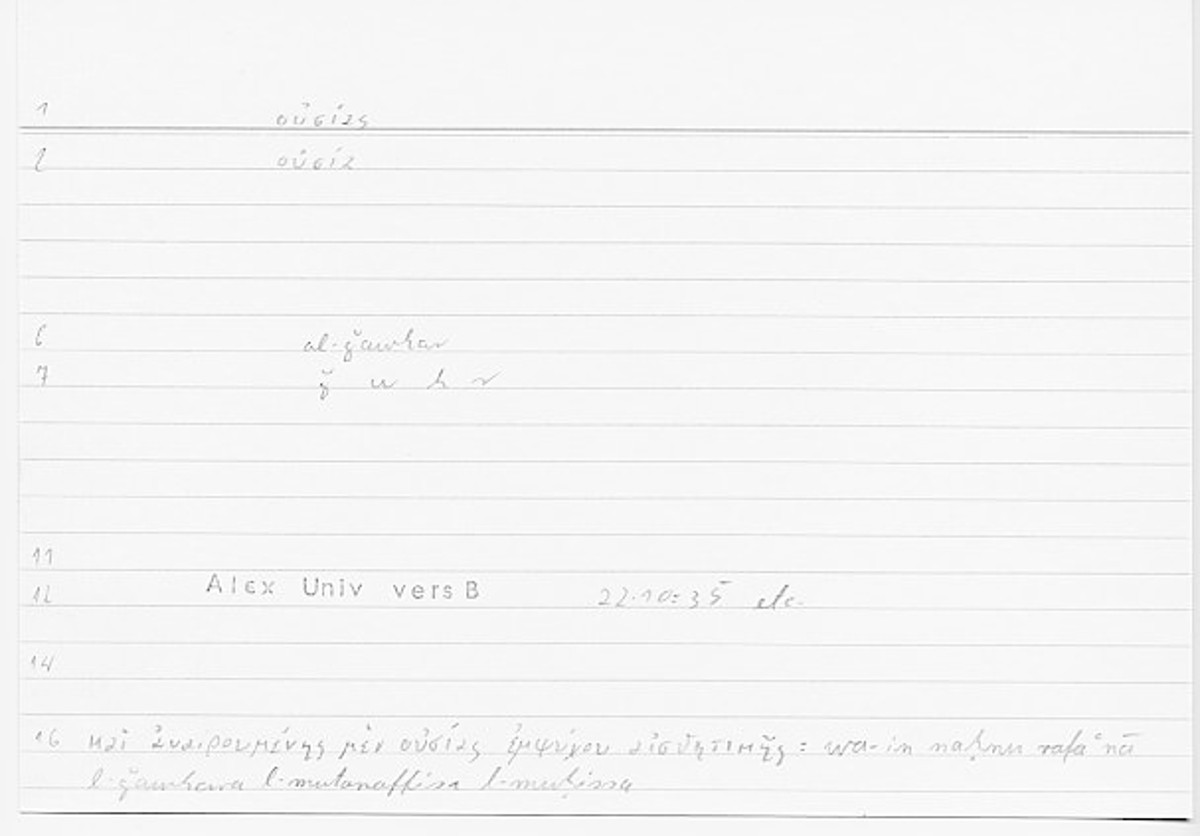 1 οὐσίας
2 οὐσία
6 al-ǧawhar
7 ǧ w h r
11
12 Alex Univ vers B 22.10:35 etc.
14
16 καὶ ἀναιρουμένης μὲν οὐσίας ἐμψύχου αἰσθητικῆς : wa-in naḥnu rafaʿnā
l-ǧawhara l-mutanaffisa l-muḥissa